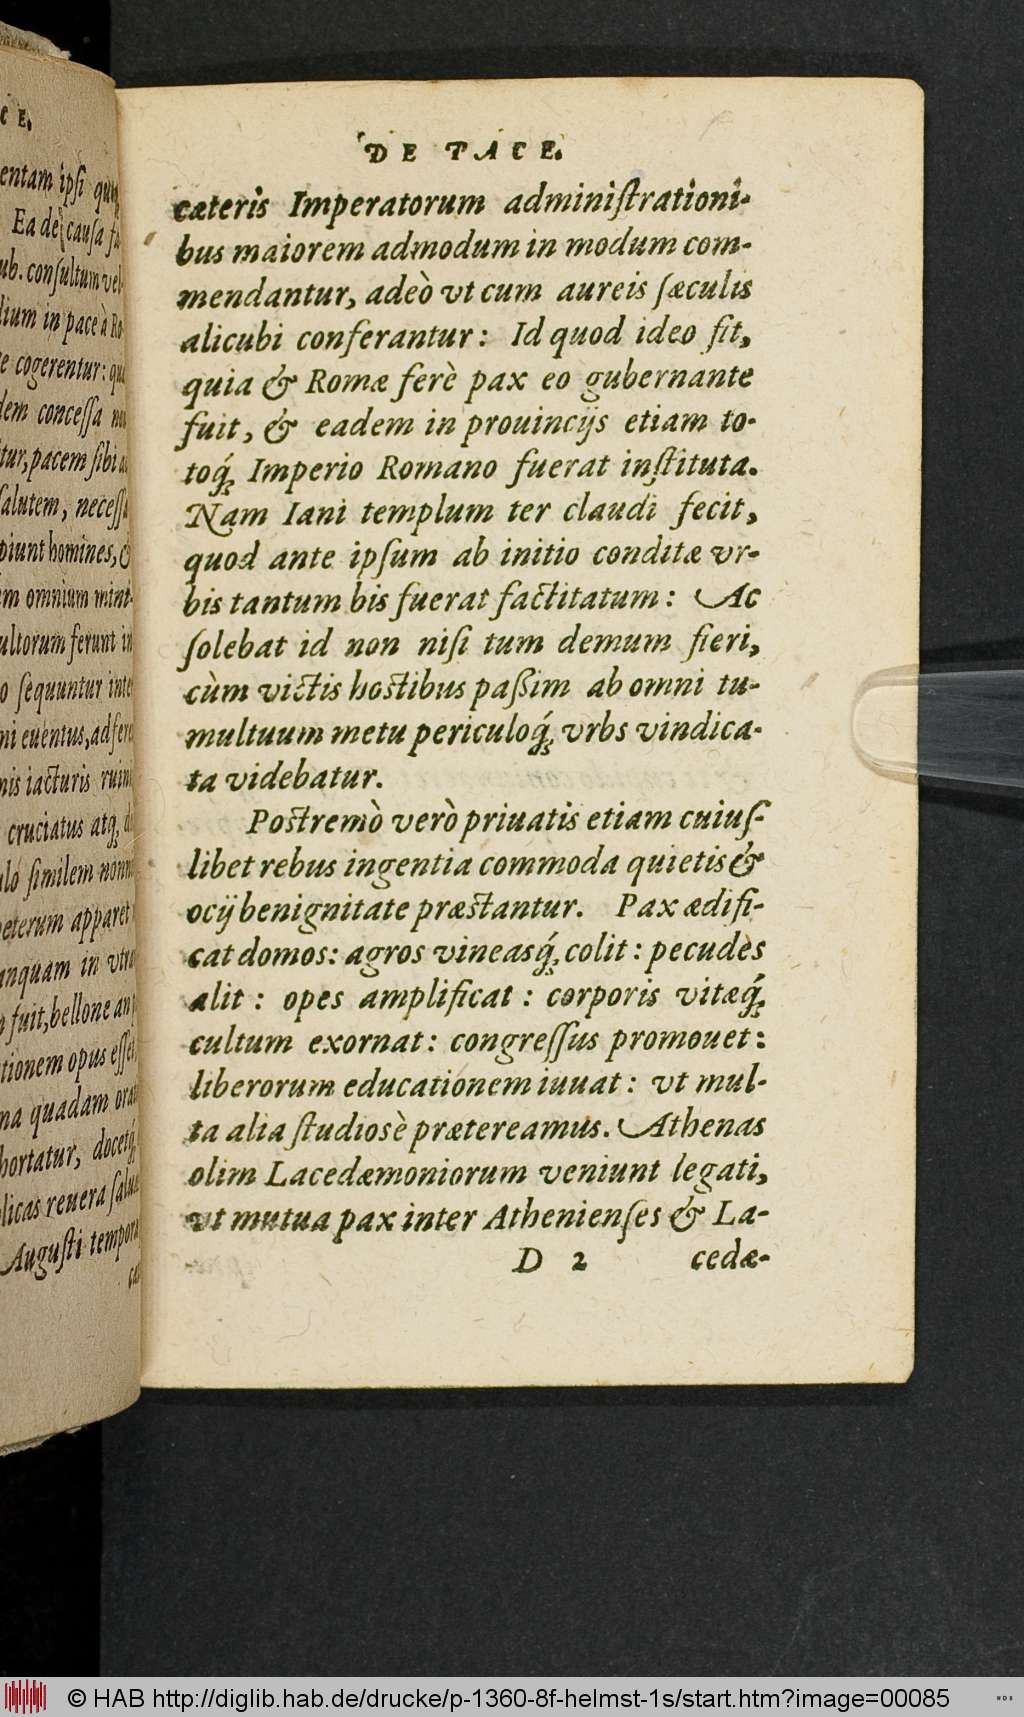 DE PACE.
cæteris Imperatorum adminiſtrationi-
bus maiorem admodum in modum com-
mendantur, adeò vt cum aureis ſæculis
alicubi conferantur: Id quod ideo fit,
quia & Romæ ferè pax eo gubernante
fuit, & eadem in prouincijs etiam to-
toq́; Imperio Romano fuerat inſtituta.
Nam Iani templum ter claudi fecit,
quod ante ipſum ab initio conditæ vr-
bis tantum bis fuerat factitatum: Ac
ſolebat id non niſi tum demum fieri,
cùm victis hoſtibus paßim ab omni tu-
multuum metu periculoq́; vrbs vindica-
ta videbatur.
Poſtremò verò priuatis etiam cuiuſ-
libet rebus ingentia commoda quietis &
ocij benignitate præſtantur. Pax ædifi-
cat domos: agros vineasq́; colit: pecudes
alit: opes amplificat: corporis vitæq́;
cultum exornat: congreſſus promouet:
liberorum educationem iuuat: vt mul-
ta alia ſtudiosè prætereamus. Athenas
olim Lacedæmoniorum veniunt legati,
vt mutua pax inter Athenienſes & La-
D 2 cedæ-
CE.
entam ipſi
Ea de cauſa
ub. conſultum vel
dium in pace à Ro
e cogerentur:
dem conceſſa
tur, pacem ſibi
ſalutem,
piunt homines, &
im omnium
ultorum ferunt in
o ſequuntur
ni euentus,
nis iacturis
cruciatus atq́;
ulo ſimilem
eterum apparet
anquam in
fuit, bellone an
tionem opus eſſe
na quadam
hortatur, docetq́;
licas reuera
Auguſti
© HAB http://diglib.hab.de/drucke/p-1360-8f-helmst-1s/start.htm?image=00085